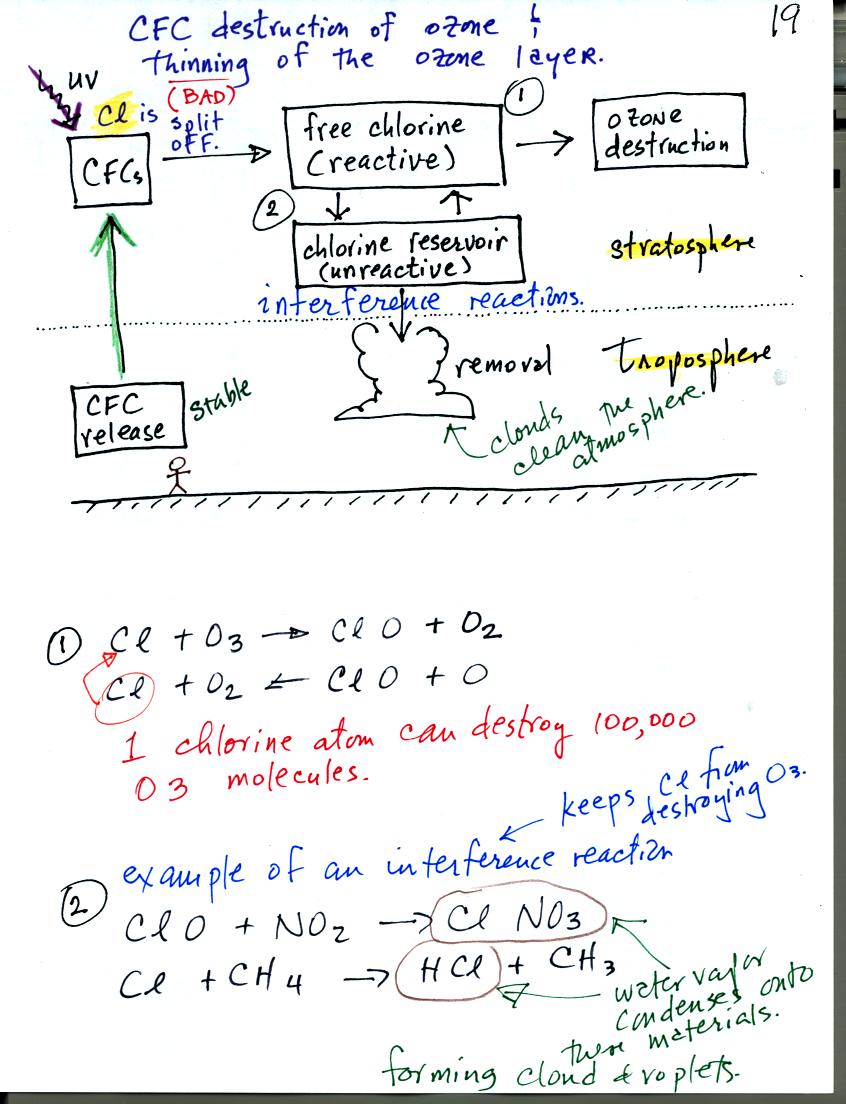 19
CFC destruction of ozone &
thinning of the ozone layer.
(BAD)
UV
Cl is
split
off.
CFCs
free chlorine
(reactive)
1
ozone
destruction
2
chlorine reservoir
(unreactive)
stratosphere
interference reactions.
CFC
release
stable
removal
troposphere
clouds
clean the
atmosphere.
1 Cl + O3 → ClO + O2
Cl + O2 ← ClO + O
1 chlorine atom can destroy 100,000
O3 molecules.
keeps Cl from
destroying O3.
example of an interference reaction
2
ClO + NO2 → Cl NO3
Cl + CH4 → HCl + CH3
water vapor
condenses onto
these materials.
forming cloud droplets.